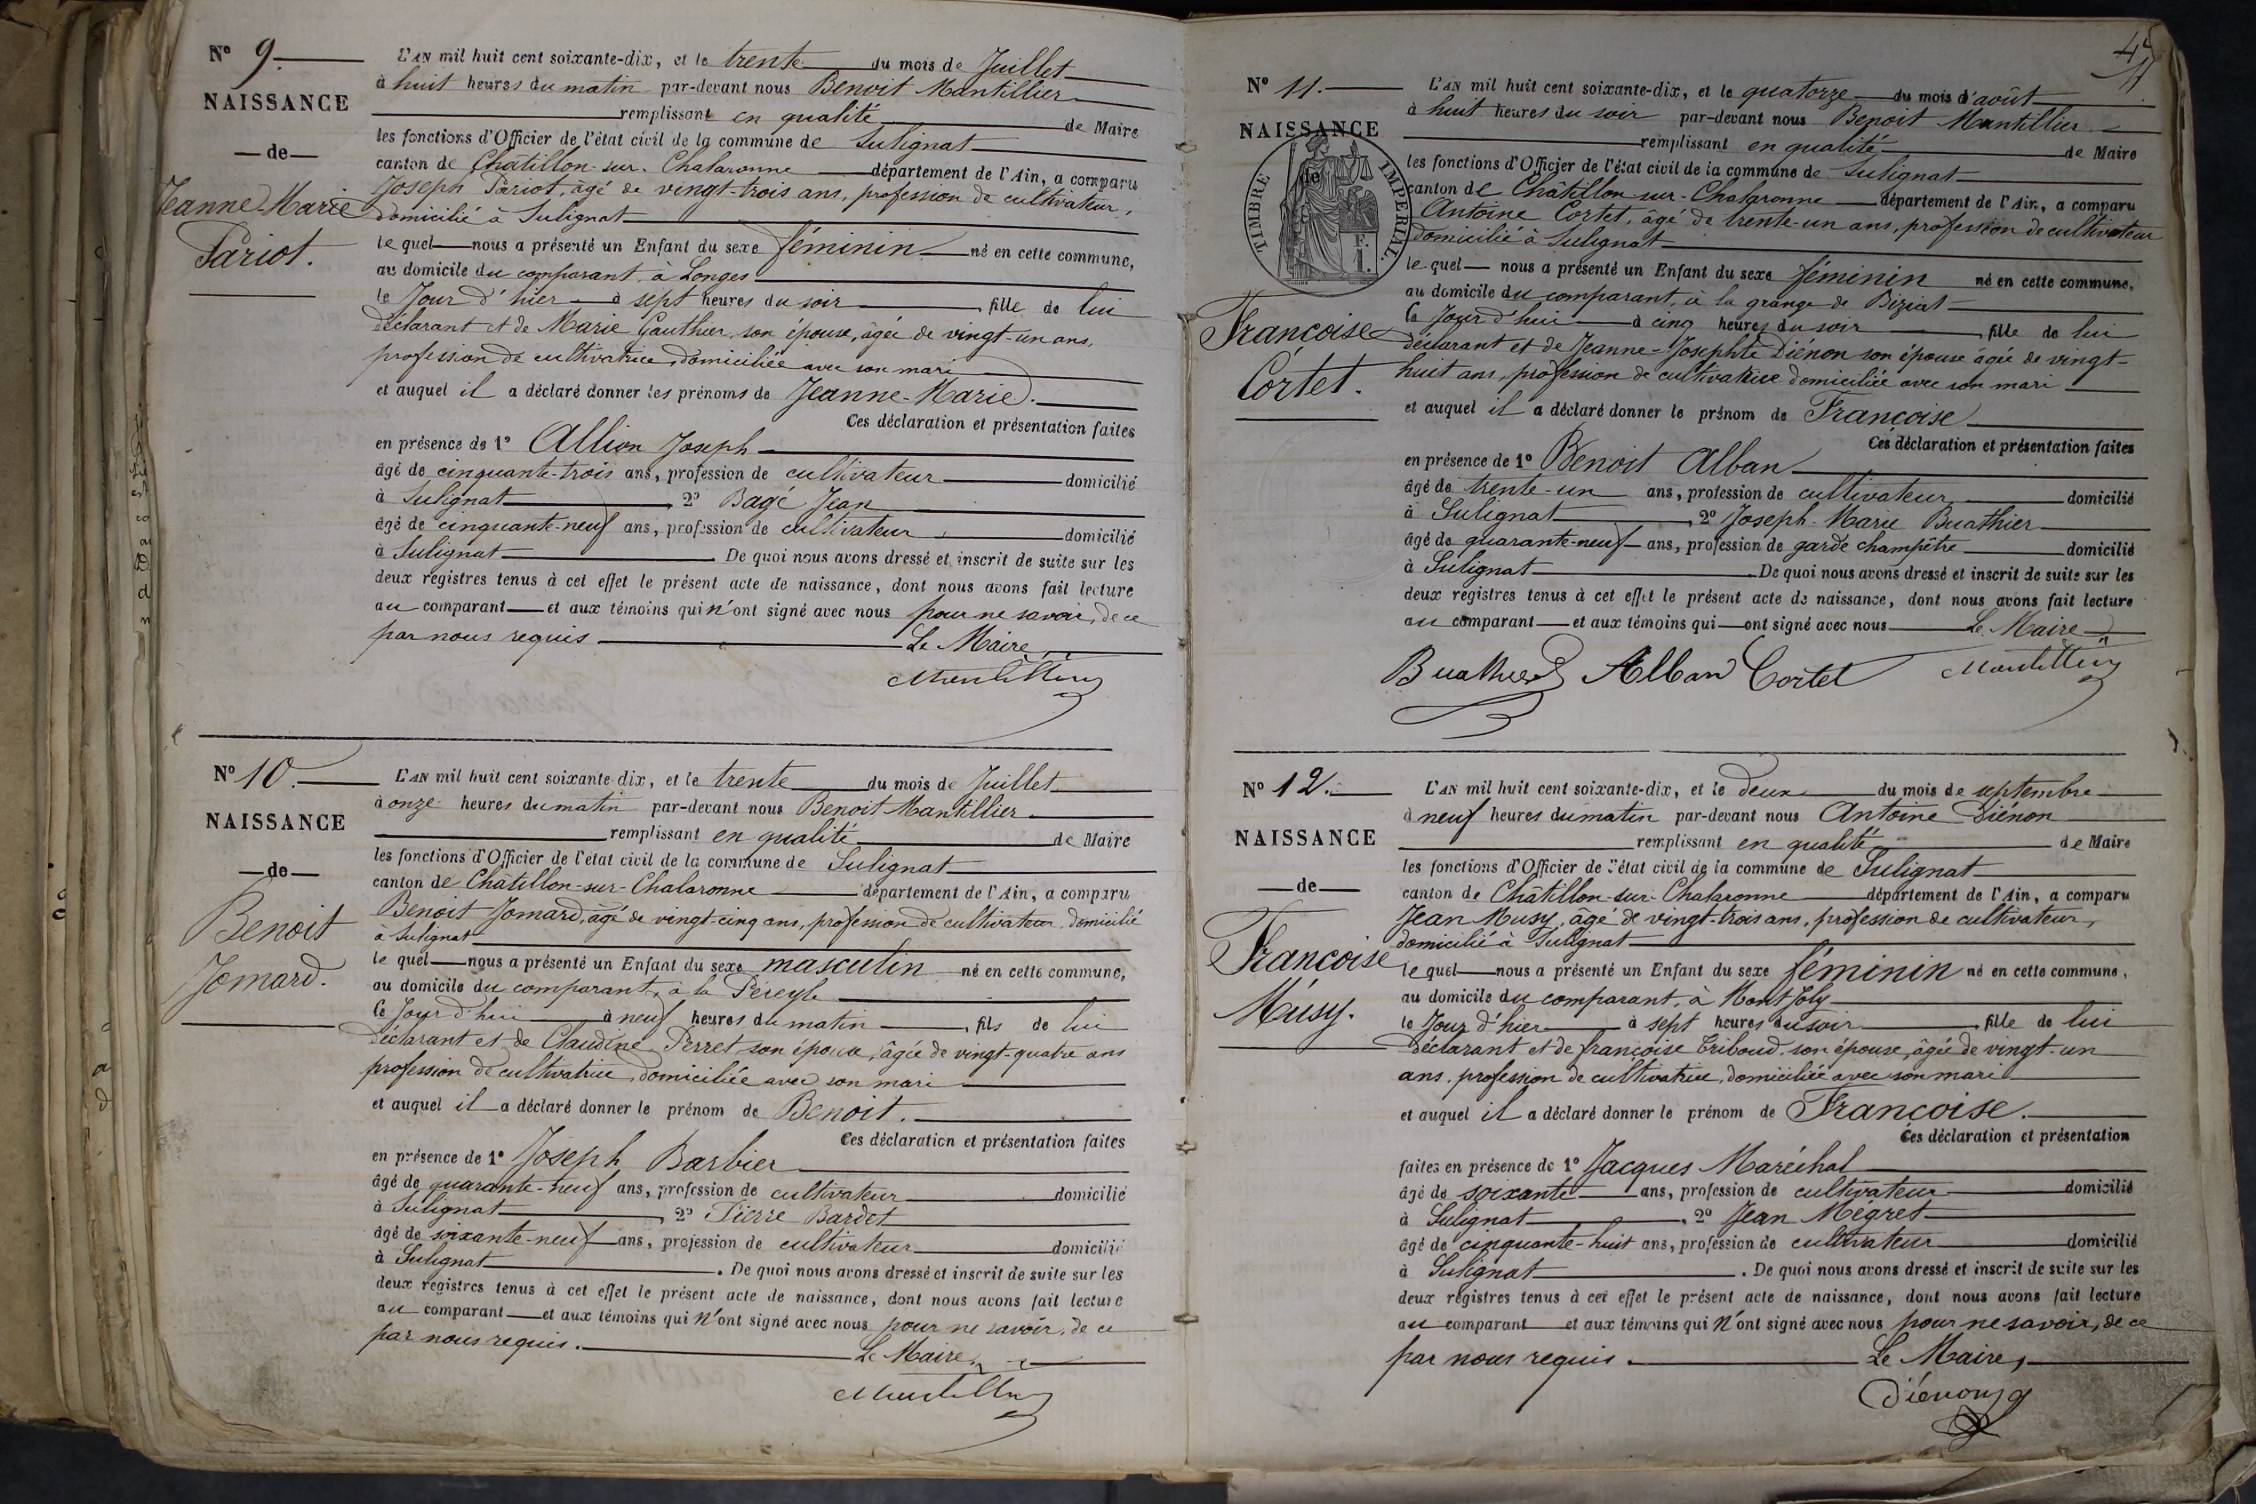 N° 9.
NAISSANCE
de
Jeanne-Marie
Pariot.
L'AN mil huit cent soixante-dix, et le trente du mois de Juillet
à huit heures du matin par-devant nous Benoit Mantillier
remplissant en qualité de Maire
les fonctions d'Officier de l'état civil de la commune de Sulignat
canton de Châtillon-sur-Chalaronne département de l'Ain, a comparu
Joseph Pariot, âgé de vingt-trois ans, profession de cultivateur,
domicilié à Sulignat
lequel nous a présenté un Enfant du sexe féminin né en cette commune,
au domicile du comparant, à Longes
le Jour d'hier à sept heures du soir, fille de lui
déclarant et de Marie Gauthier, son épouse, âgée de vingt-un ans,
profession de cultivatrice, domiciliée avec son mari
et auquel il a déclaré donner les prénoms de Jeanne-Marie.
Ces déclaration et présentation faites
en présence de 1° Allion Joseph
âgé de cinquante-trois ans, profession de cultivateur domicilié
à Sulignat, 2° Bagé Jean
âgé de cinquante-neuf ans, profession de cultivateur, domicilié
à Sulignat De quoi nous avons dressé et inscrit de suite sur les
deux registres tenus à cet effet le présent acte de naissance, dont nous avons fait lecture
au comparant et aux témoins qui n'ont signé avec nous pour ne savoir, de ce
par nous requis Le Maire,
Mantillier
N° 10.
NAISSANCE
de
Benoit
Jomard.
L'AN mil huit cent soixante-dix, et le trente du mois de Juillet
à onze heures du matin par-devant nous Benoit Mantillier
remplissant en qualité de Maire
les fonctions d'Officier de l'état civil de la commune de Sulignat
canton de Châtillon-sur-Chalaronne département de l'Ain, a comparu
Benoit Jomard, âgé de vingt-cinq ans, profession de cultivateur, domicilié
à Sulignat
lequel nous a présenté un Enfant du sexe masculin né en cette commune,
au domicile du comparant, à la
le Jour d'hui à neuf heures du matin, fils de lui
déclarant et de Claudine Perret, son épouse, âgée de vingt-quatre ans
profession de cultivatrice, domiciliée avec son mari
et auquel il a déclaré donner le prénom de Benoit.
Ces déclaration et présentation faites
en présence de 1° Joseph Barbier
âgé de quarante-neuf ans, profession de cultivateur domicilié
à Sulignat, 2° Pierre Bardet
âgé de soixante-neuf ans, profession de cultivateur domicilié
à Sulignat. De quoi nous avons dressé et inscrit de suite sur les
deux registres tenus à cet effet le présent acte de naissance, dont nous avons fait lecture
au comparant et aux témoins qui n'ont signé avec nous pour ne savoir, de ce
par nous requis. Le Maire,
Mantillier
N° 11.
NAISSANCE
de
TIMBRE IMPERIAL.
F.
1.
Françoise
Cortet.
L'AN mil huit cent soixante-dix, et le quatorze du mois d'août
à huit heures du soir par-devant nous Benoit Mantillier
remplissant en qualité de Maire
les fonctions d'Officier de l'état civil de la commune de Sulignat
canton de Châtillon-sur-Chalaronne département de l'Ain, a comparu
Antoine Cortet, âgé de trente-un ans, profession de cultivateur
domicilié à Sulignat
lequel nous a présenté un Enfant du sexe féminin né en cette commune,
au domicile du comparant, à la grange de Biziat
le Jour d'hui à cinq heures du soir, fille de lui
déclarant et de Jeanne-Josephte Diénon son épouse âgée de vingt-
huit ans, profession de cultivatrice domiciliée avec son mari
et auquel il a déclaré donner le prénom de Françoise
Ces déclaration et présentation faites
en présence de 1° Benoit Alban
âgé de trente-un ans, profession de cultivateur, domicilié
à Sulignat, 2° Joseph-Marie Buathier
âgé de quarante-neuf ans, profession de garde champêtre domicilié
à Sulignat. De quoi nous avons dressé et inscrit de suite sur les
deux registres tenus à cet effet le présent acte de naissance, dont nous avons fait lecture
au comparant et aux témoins qui ont signé avec nous Le Maire
Buathier Alban Cortet Mantillier
N° 12.
NAISSANCE
de
Françoise
Musy.
L'AN mil huit cent soixante-dix, et le deux du mois de septembre
à neuf heures du matin par-devant nous Antoine Diénon
remplissant en qualité de Maire
les fonctions d'Officier de l'état civil de la commune de Sulignat
canton de Châtillon-sur-Chalaronne département de l'Ain, a comparu
Jean Musy, âgé de vingt-trois ans, profession de cultivateur,
domicilié à Sulignat
lequel nous a présenté un Enfant du sexe féminin né en cette commune,
au domicile du comparant, à Montjoly
le Jour d'hier à sept heures du soir, fille de lui
déclarant et de françoise Triboud, son épouse, âgée de vingt-un
ans, profession de cultivatrice, domiciliée avec son mari
et auquel il a déclaré donner le prénom de Françoise.
Ces déclaration et présentation
faites en présence de 1° Jacques Maréchal
âgé de soixante ans, profession de cultivateur domicilié
à Sulignat, 2° Jean Megret
âgé de cinquante-huit ans, profession de cultivateur domicilié
à Sulignat. De quoi nous avons dressé et inscrit de suite sur les
deux registres tenus à cet effet le présent acte de naissance, dont nous avons fait lecture
au comparant et aux témoins qui n'ont signé avec nous pour ne savoir, de ce
par nous requis. Le Maire,
Diénon